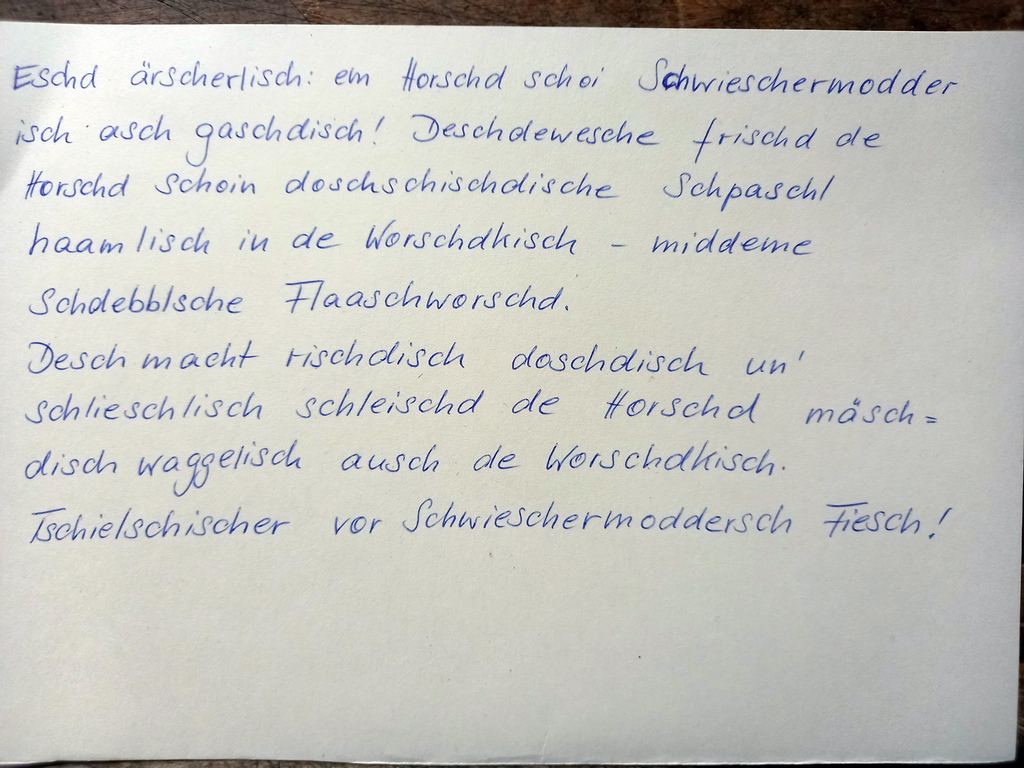 Eschd ärscherlisch: em Horschd schoi Schwieschermodder
isch asch gaschdisch! Deschdewesche frischd de
Horschd schoin doschschischdische Schpaschl
haamlisch in de Worschdkisch – middeme
Schdebblsche Flaaschworschd.
Desch macht rischdisch doschdisch un'
schlieschlisch schleischd de Horschd mäsch=
disch waggelisch ausch de Worschdkisch.
Tschielschischer vor Schwieschermoddersch Fiesch!